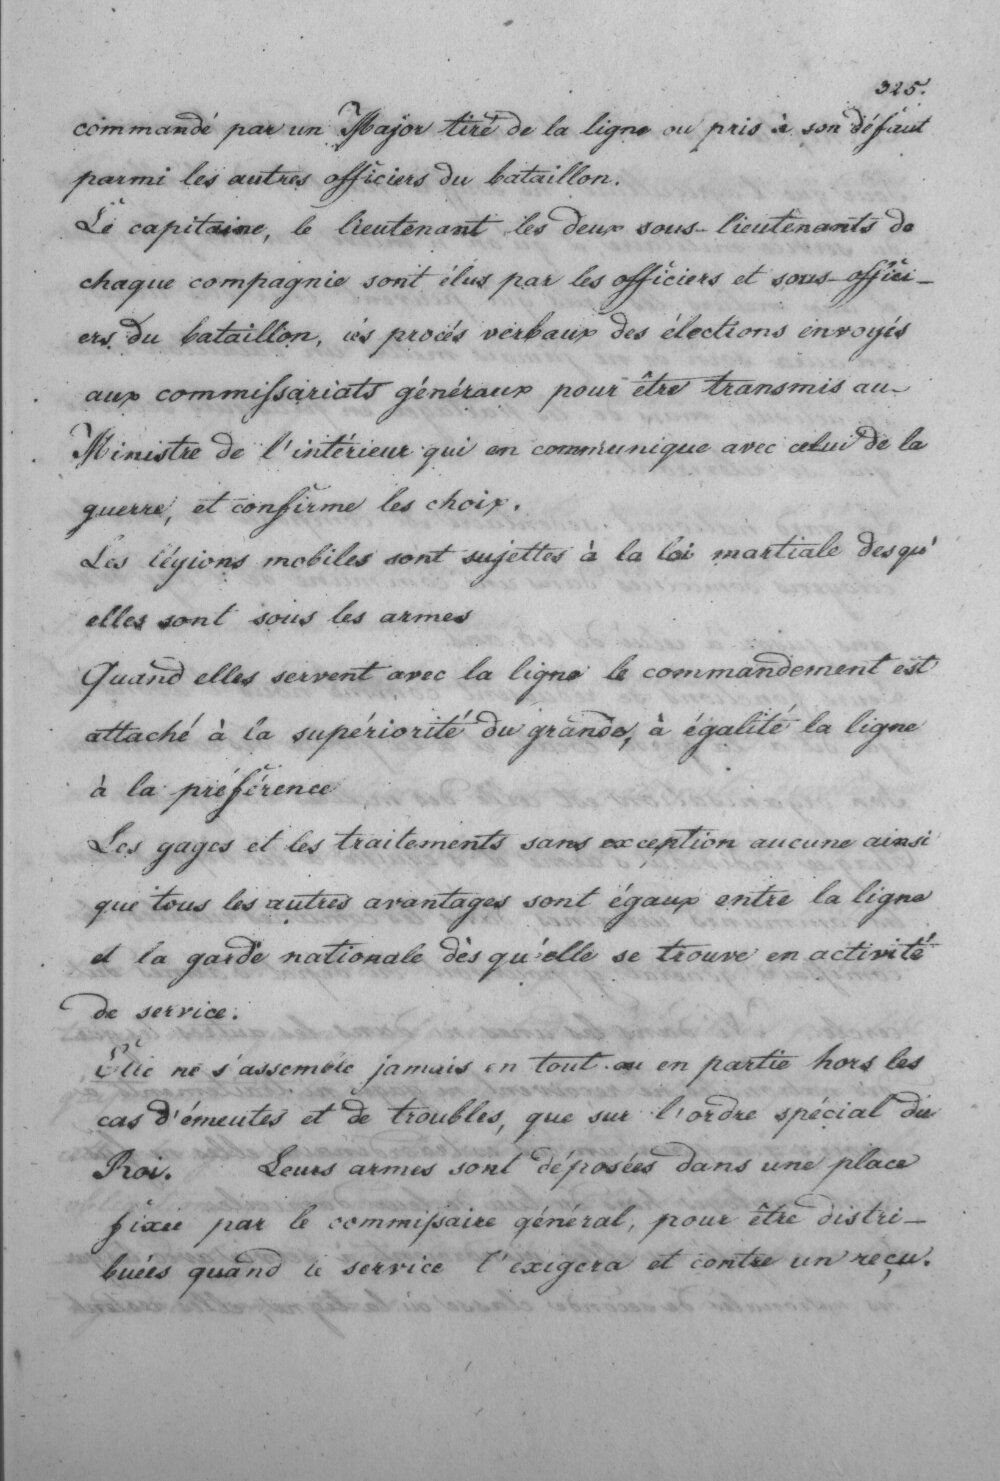 325.
commandé par un Major tiré de la ligne ou pris à son défaut
parmi les autres officiers du bataillon.
Le capitaine, le lieutenant les deux sous-lieutenants de
chaque compagnie sont élus par les officiers et sous-offici-
ers du bataillon, les procés verbaux des élections envoyés
aux commissariats généraux pour être transmis au
Ministre de l'intérieur qui en communique avec celui de la
guerre, et confirme les choix.
Les légions mobiles sont sujettes à la loi martiale desqu'
elles sont sous les armes
Quand elles servent avec la ligne le commandement est
attaché à la supériorité du grande, à égalité la ligne
à la préférence
Les gages et les traitements sans exception aucune ainsi
que tous les autres avantages sont égaux entre la ligne
et la garde nationale dès qu'elle se trouve en activité
de service.
Elle ne s'assemble jamais en tout ou en partie hors les
cas d'émeutes et de troubles, que sur l'ordre spécial du
Roi. Leurs armes sont déposées dans une place
fixée par le commissaire général, pour être distri-
buées quand le service l'exigera et contre un reçu.